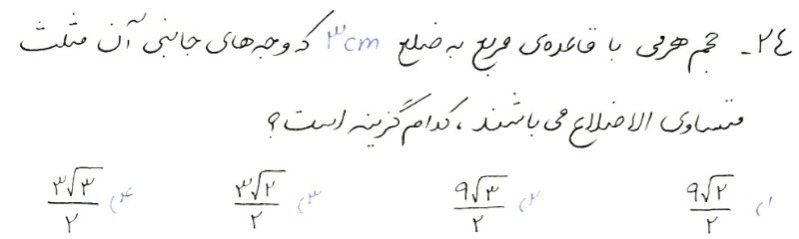 ۲۴- حجم هرمی با قاعده‌ی مربع به ضلع ۳cm که وجه‌های جانبی آن مثلث
متساوی الاضلاع می باشند، کدام گزینه است؟
۱) ۹√۲/۲ ۲) ۹√۳/۲ ۳) ۳√۲/۲ ۴) ۳√۳/۲